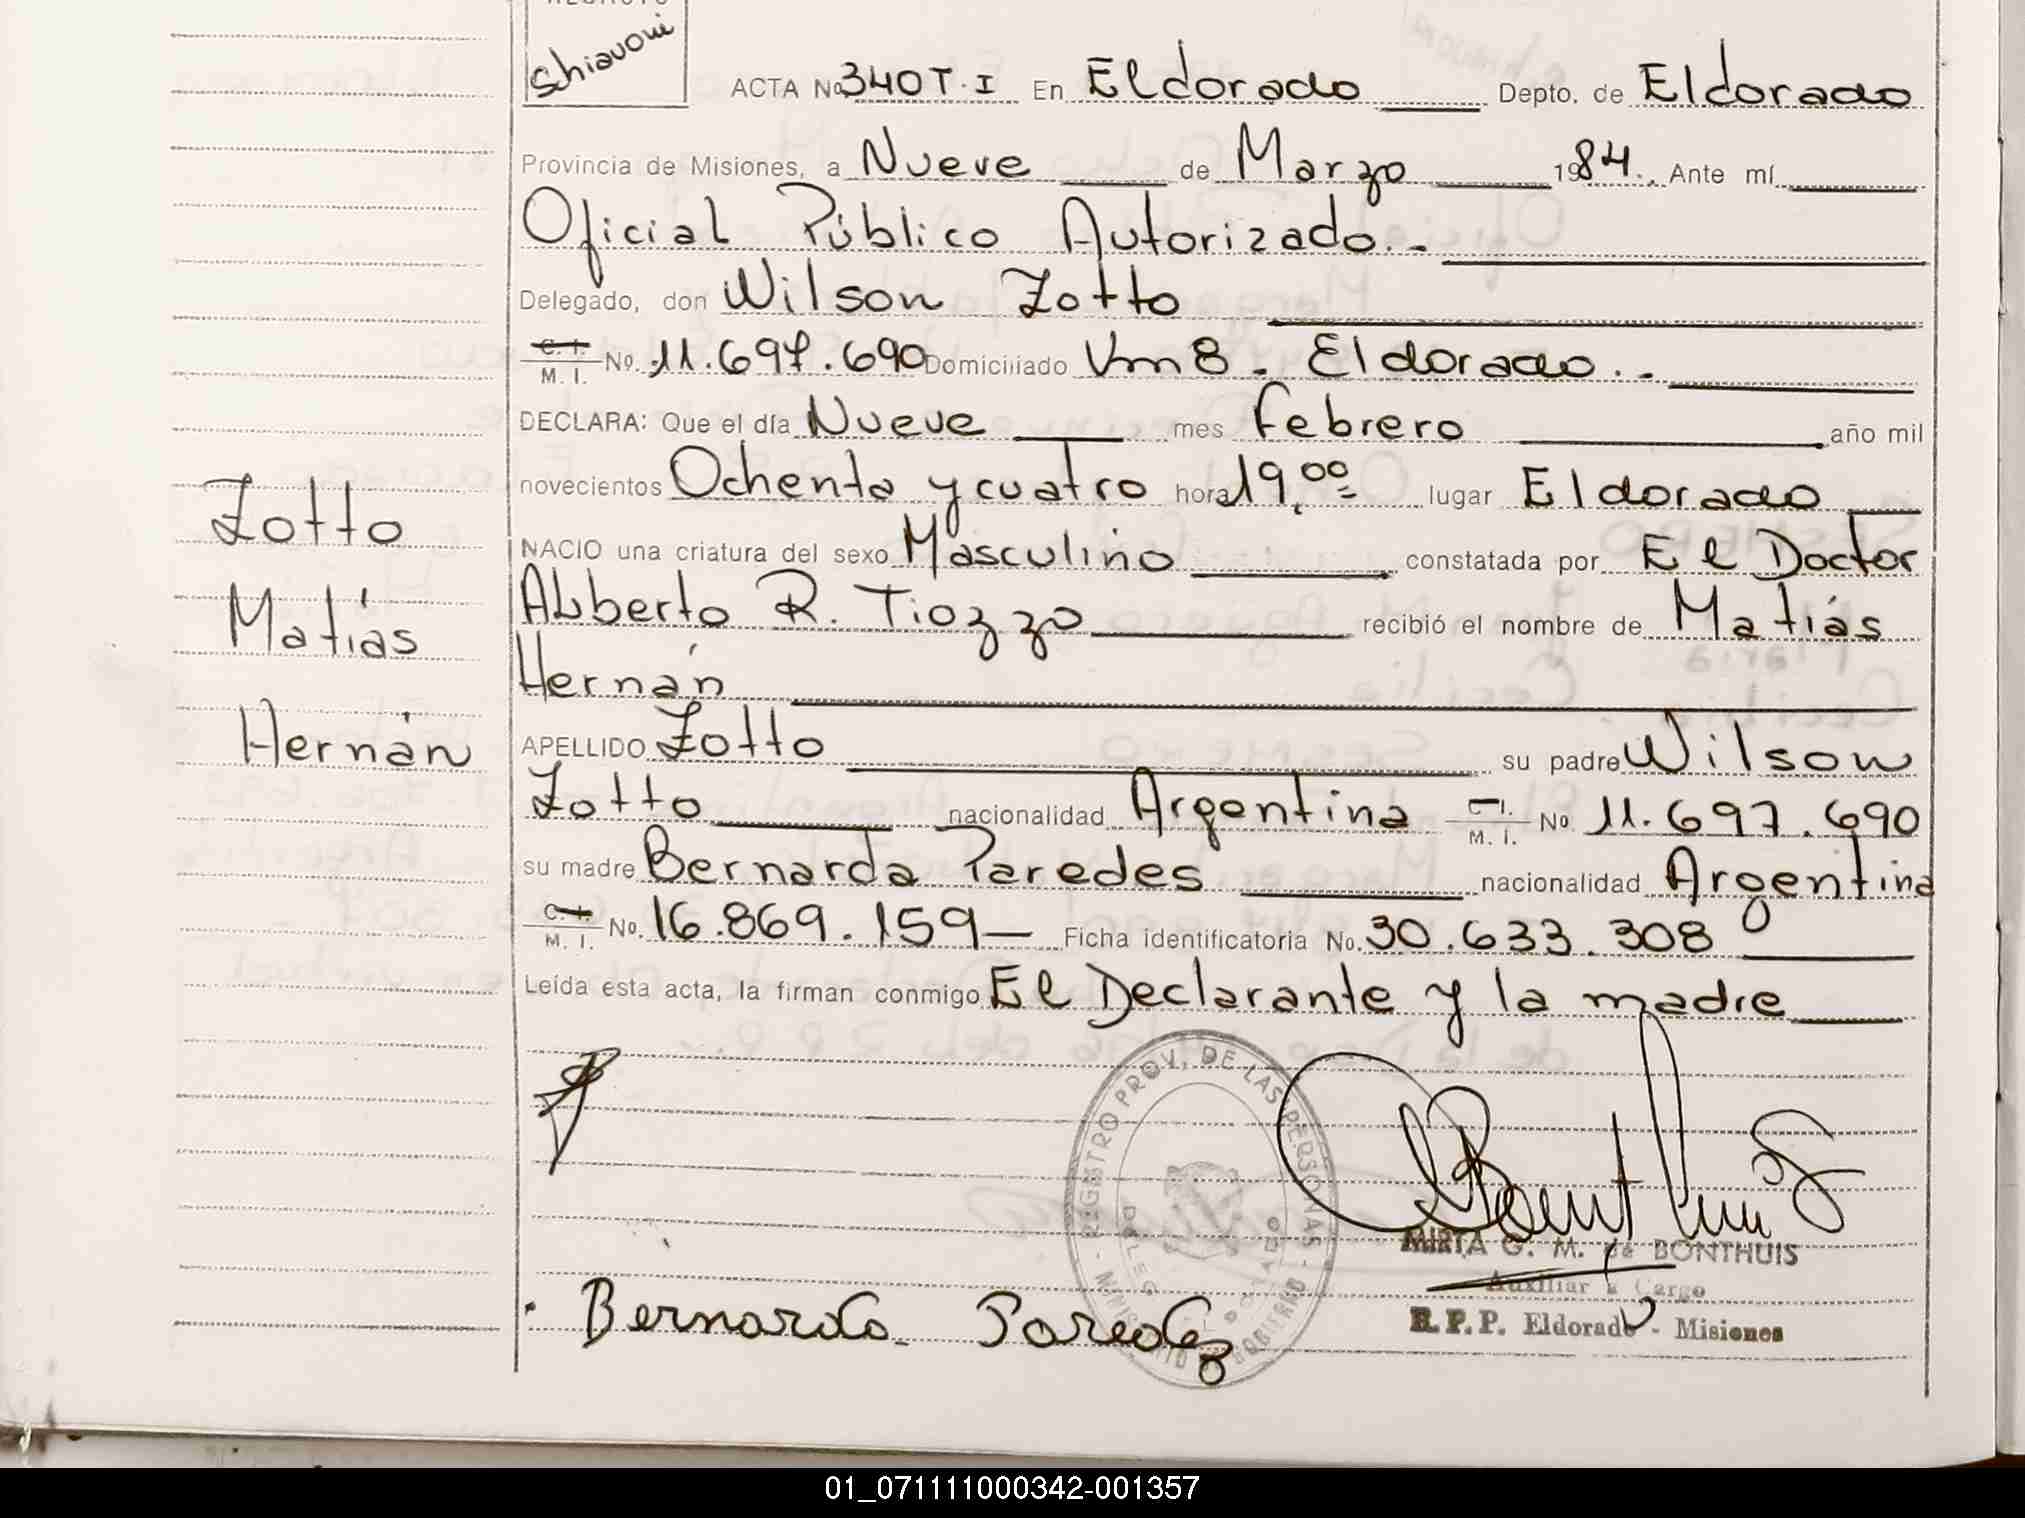 Schiavoni
ACTA No 340 T. I En Eldorado Depto. de Eldorado
Provincia de Misiones, a Nueve de Marzo 1984. Ante mí
Oficial Público Autorizado.-
Delegado, don Wilson Zotto
C. I. M. I. No. 11.697.690 Domiciliado Km 8 - Eldorado.-
DECLARA: Que el día Nueve mes Febrero año mil
novecientos Ochenta y cuatro hora 19,00 lugar Eldorado
NACIO una criatura del sexo Masculino constatada por El Doctor
Alberto R. Tiozzo recibió el nombre de Matías
Hernán
APELLIDO Zotto su padre Wilson
Zotto nacionalidad Argentina C. I. M. I. No 11.697.690
su madre Bernarda Paredes nacionalidad Argentina
C. I. M. I. No. 16.869.159 Ficha identificatoria No. 30.633.308
Leída esta acta, la firman conmigo El Declarante y la madre
Zotto
Matías
Hernán
REGISTRO PROV. DE LAS PERSONAS
MIRTA G. M. de BONTHUIS
Auxiliar a Cargo
R. P. P. Eldorado - Misiones
Bernarda Paredes
01_071111000342-001357